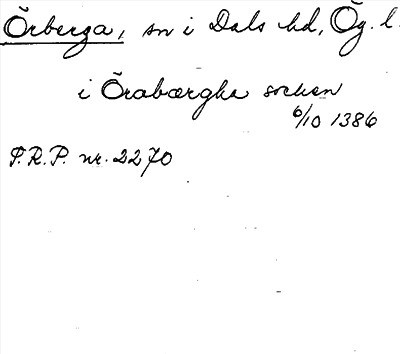 Örberga, sn i Dals hd, Ög. l.
i Örabærgha socken
6/10 1386
P.R.P. nr. 2270